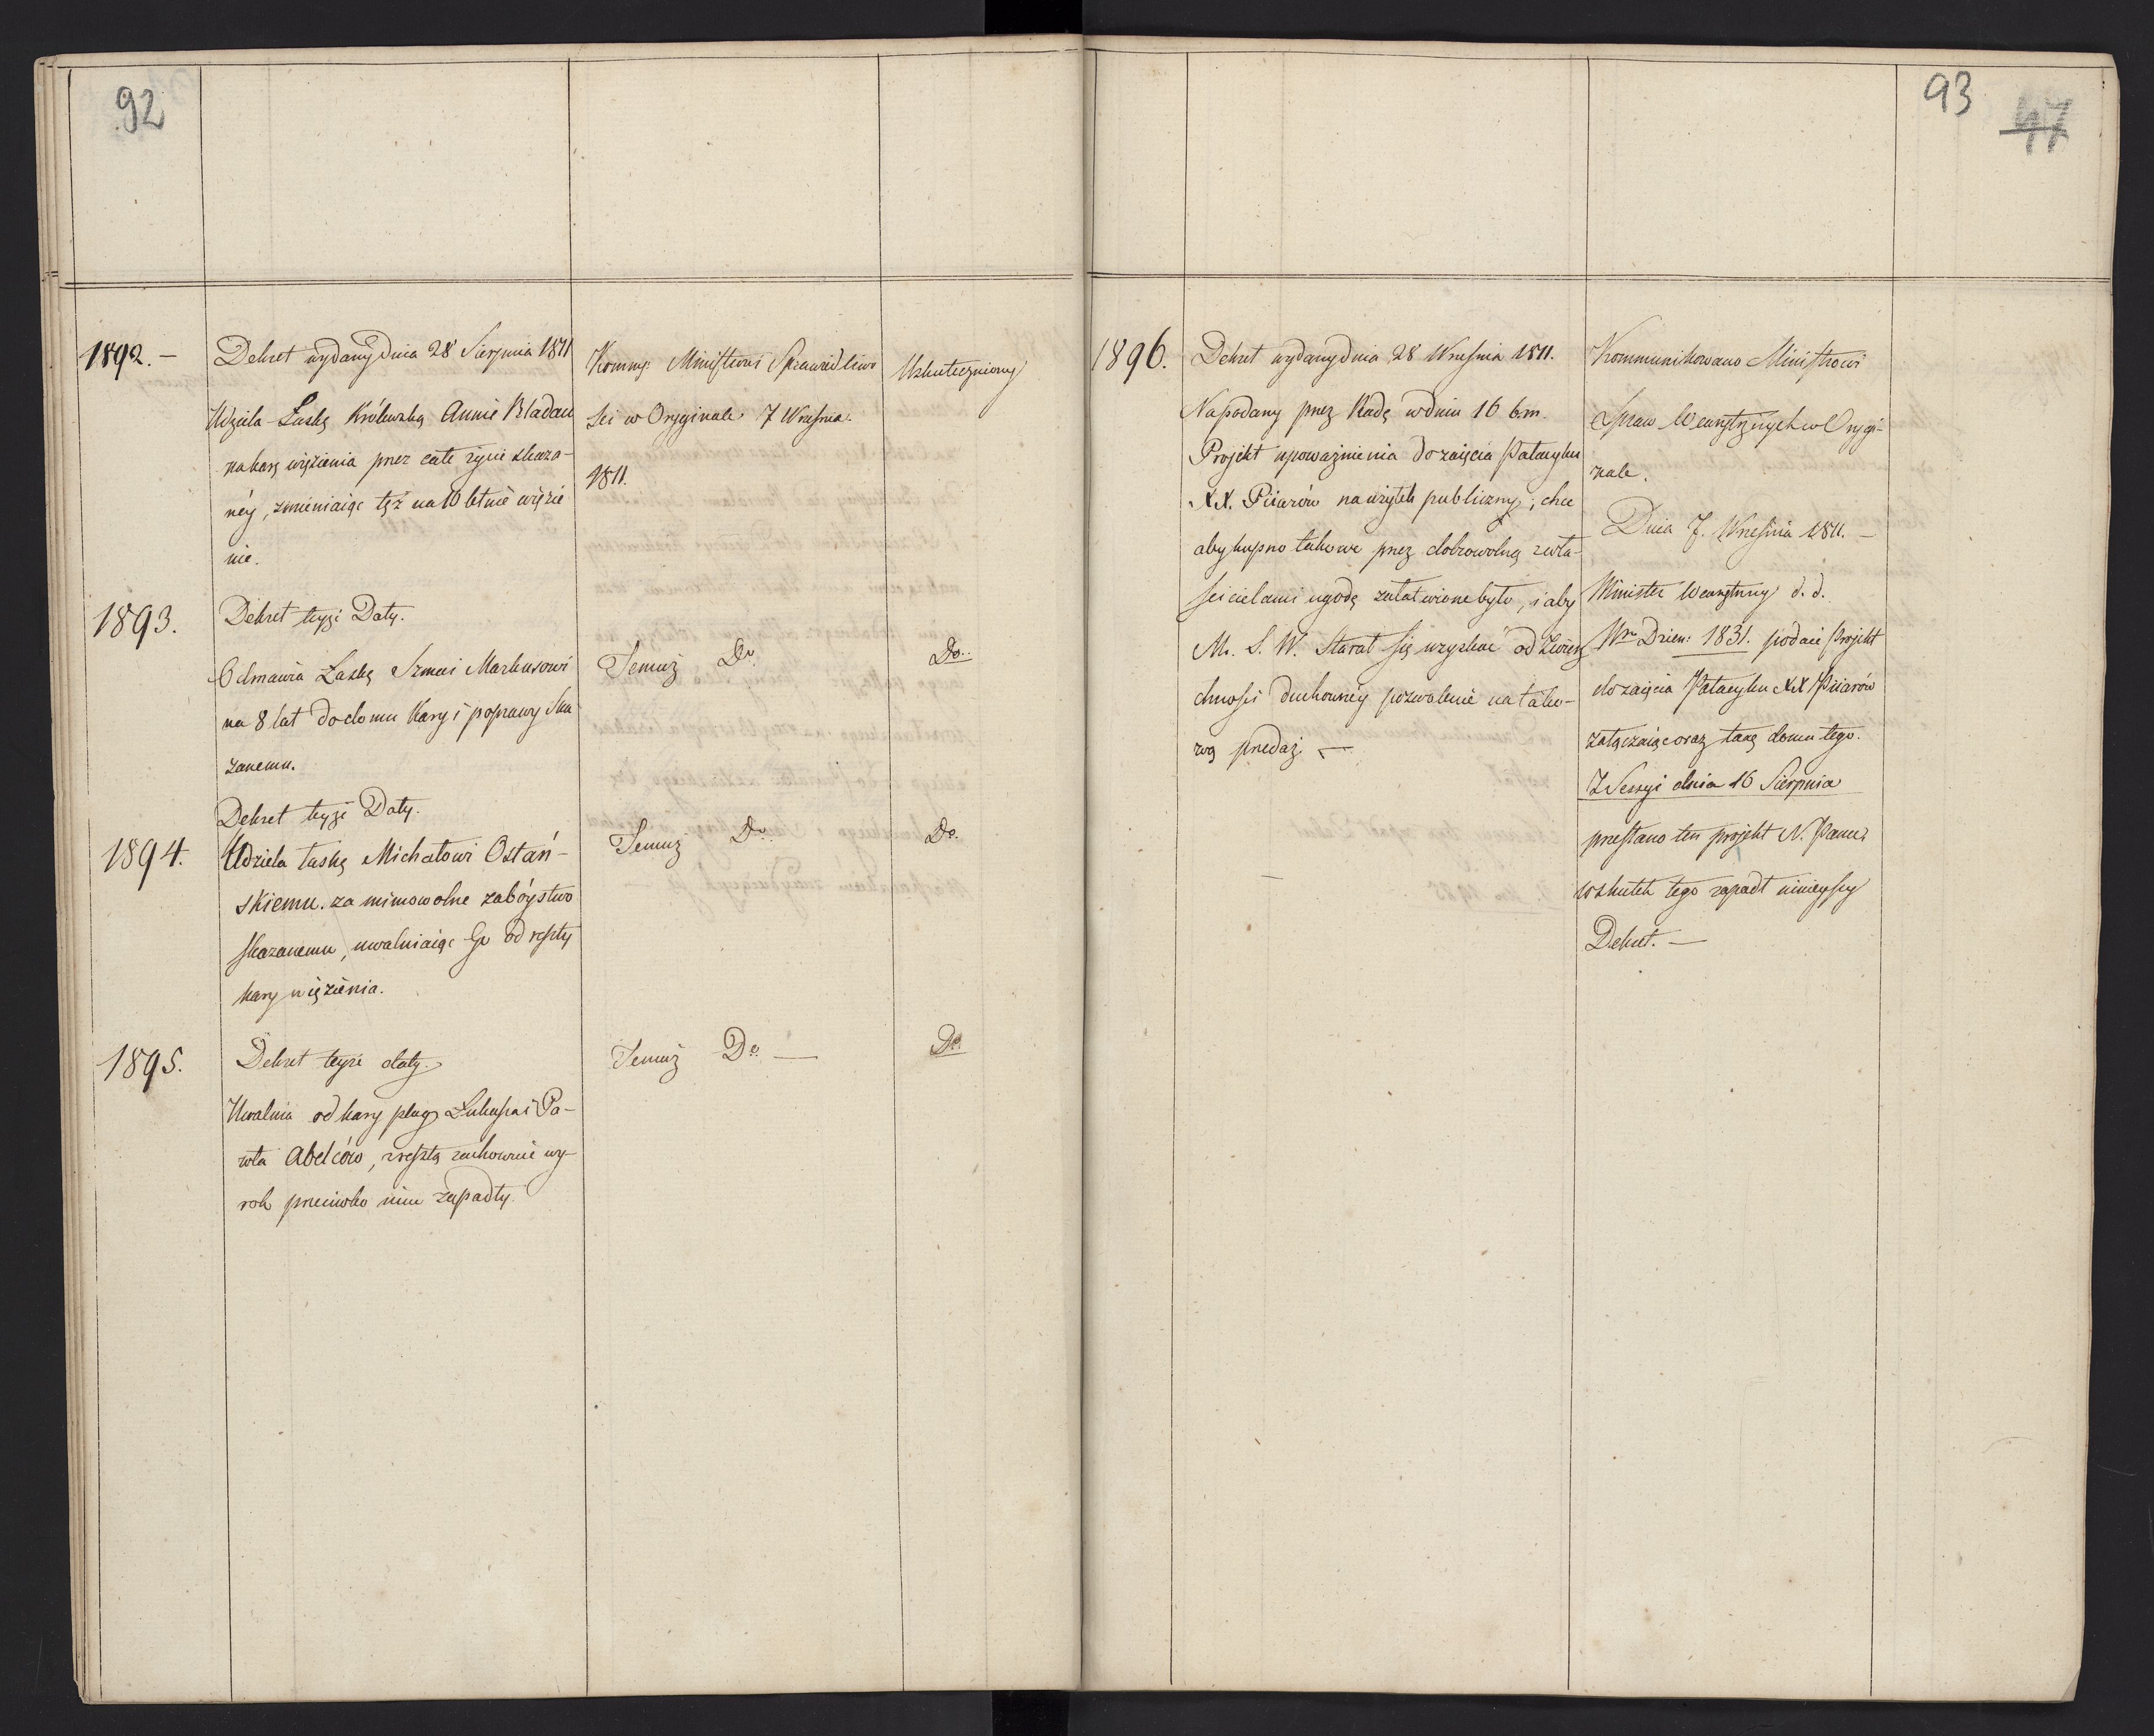 92
1892. –
Dekret wydany dnia 28 Sierpnia 1811
Udziela Łaskę Królewską Annie Bladau
na karę więzienia przez całe życie skaza-
néy, zmieniaiąc tęż na 10 letnie więzie
nie.
Kommu: Ministrowi Sprawiedliwo
ści w Oryginale 7 Września
1811.
Uskuteczniony
1893.
Dekret teyże Daty.
Odmawia Łaskę Szmai Markusowi
na 8 lat do domu Kary i poprawy Ska
zanemu.
Temuż Do
Do.
1894.
Dekret teyże Daty.
Udziela łaskę Michałowi Ostań-
skiemu. za mimowolne zabóystwo
skazanemu, uwalniaiąc Go od reszty
kary więzienia.
Temuż Do.
Do.
1895.
Dekret teyże daty.
Uwalnia od kary plag Łukasza i Pa-
wła Abelców, zresztą zachowuie wy-
rok przeciwko nim zapadły.
Temuż Do. —
Do.
93
47
1896.
Dekret wydany dnia 28 Września 1811.
Na podany przez Radę w dniu 16 b.m.
Projekt upoważnienia do zaięcia Pałacyku
XX. Piiarów na użytek publiczny; chce
aby kupno takowe przez dobrowolną z wła-
ścicielami ugodę załatwione było, i aby
M. S. W. Starał się uzyskać od Zwierz
chności duchownéy pozwolenie na tako-
wą przedaż. —
Kommunikowano Ministrowi
Spraw Wewnętrznych w Orygi-
nale.
Dnia 7. Września 1811. —
Minister Wewnętrzny d. d.
Nro Dzien: 1831. podaie Projekt
do zaięcia Pałacyku XX Piiarów
załączaiąc oraz taxę domu tego.
Z Sessyi dnia 16 Sierpnia
przesłano ten projekt N. Panu,
wskutek tego zapadł ninieyszy
Dekret. —